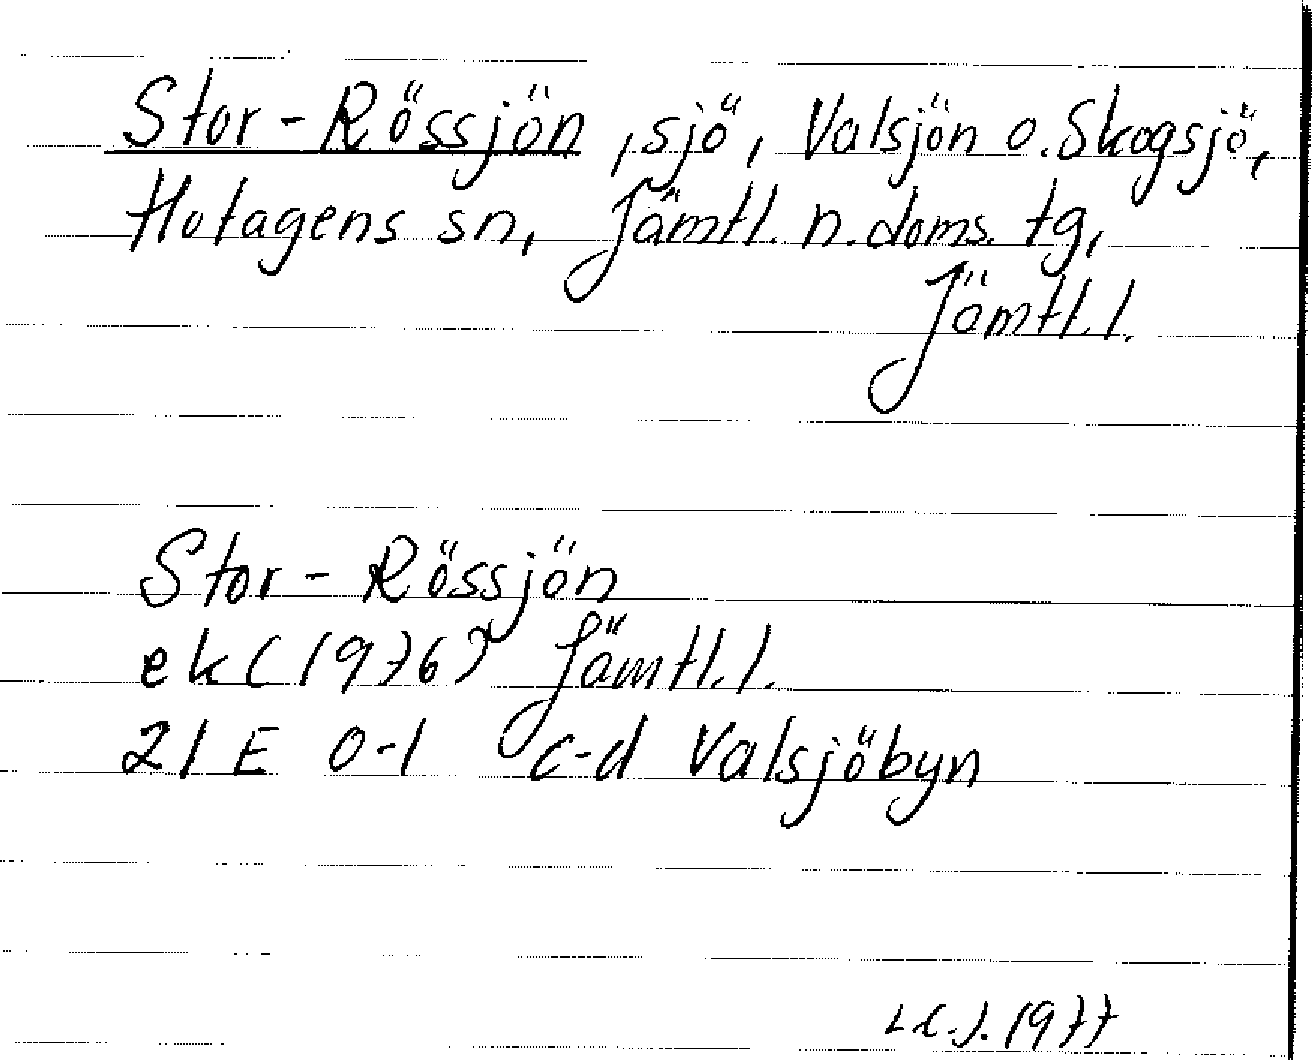 Stor-Rössjön, sjö, Valsjön o. Skogsjö,
Hotagens sn, Jämtl. n. doms. tg,
Jämtl. l.
Stor-Rössjön
ek (1976) Jämtl. l.
21 E 0-1 c-d Valsjöbyn
1977